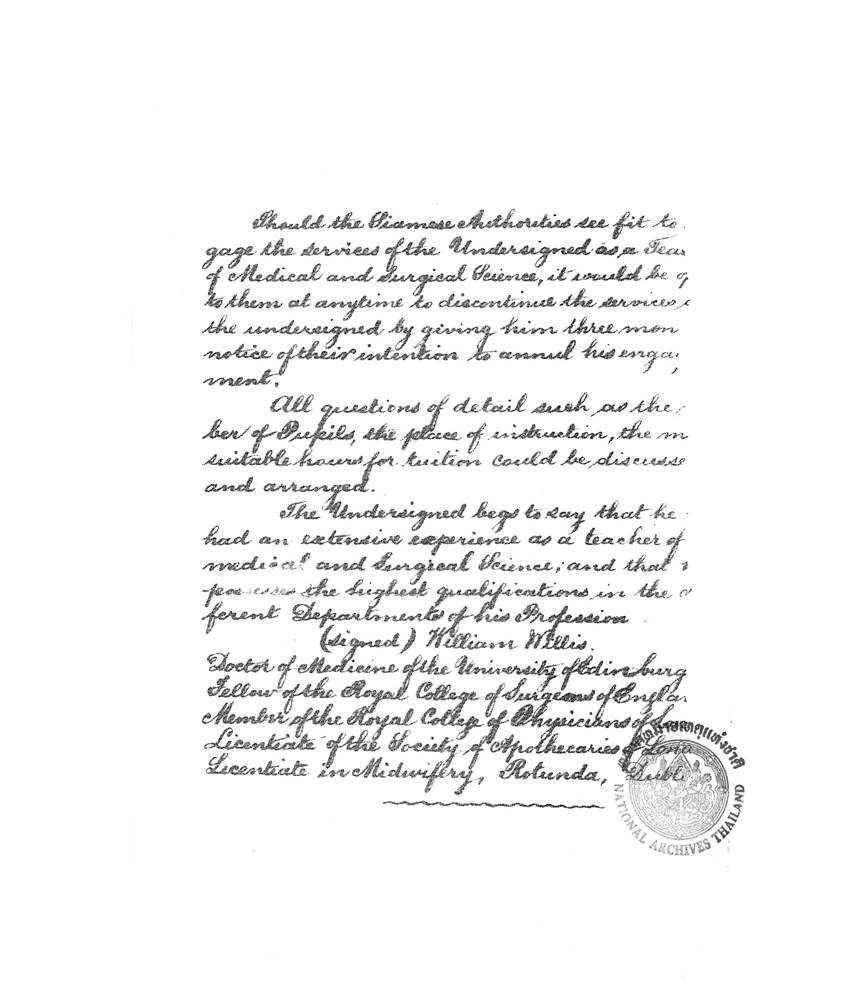 Should the Siamese Authorities see fit to
gage the services of the Undersigned as a Tea
of Medical and Surgical Science, it would be
to them at anytime to discontinue the services
the undersigned by giving him three mon
notice of their intention to annul his enga
ment.
All questions of detail such as the
ber of Pupils, the place of instruction, the m
suitable hours for tuition could be discusse
and arranged.
The Undersigned begs to say that he
had an extensive experience as a teacher of
medical and Surgical Science; and that
possesses the highest qualifications in the
ferent Departments of his Profession
(signed) William Willis.
Doctor of Medicine of the University of Edinburg
Fellow of the Royal College of Surgeons of Englan
Member of the Royal College of Physicians of
Licentiate of the Society of Apothecaries Lond
Licentiate in Midwifery, Rotunda, Dubli
NATIONAL ARCHIVES THAILAND